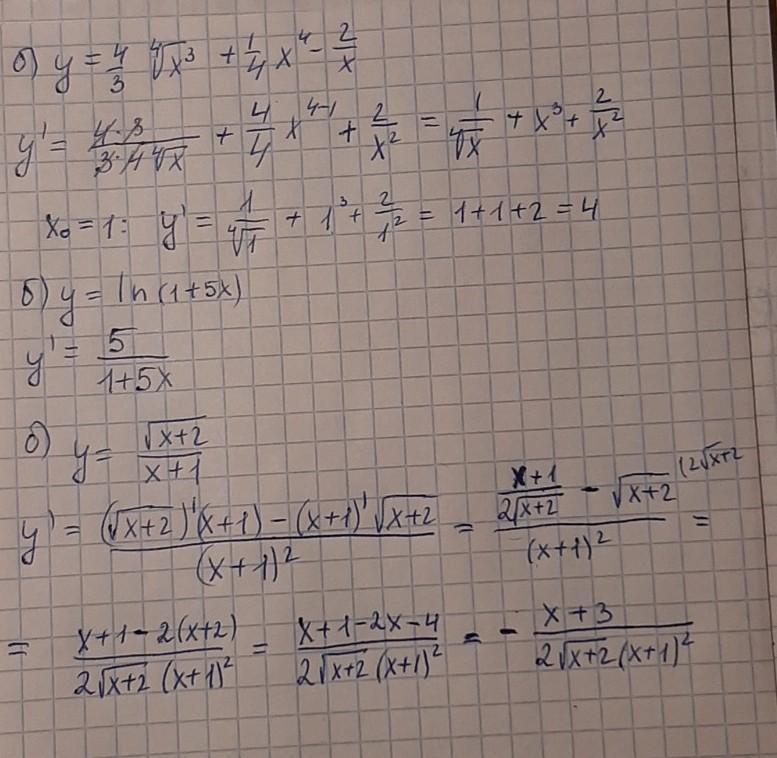 б) y = 4/3 ∜x³ + 1/4 x⁴ - 2/x
y' = 4·3/(3·4 ∜x) + 4/4 x⁴⁻¹ + 2/x² = 1/∜x + x³ + 2/x²
x₀ = 1: y' = 1/∜1 + 1³ + 2/1² = 1+1+2 = 4
б) y = ln(1+5x)
y' = 5/(1+5x)
б) y = √(x+2)/(x+1)
y' = ((√(x+2))'(x+1) - (x+1)'√(x+2))/(x+1)² = ((x+1)/(2√(x+2)) - √(x+2)^(2√(x+2))/(x+1)² =
= (x+1-2(x+2))/(2√(x+2) (x+1)²) = (x+1-2x-4)/(2√(x+2) (x+1)²) = - (x+3)/(2√(x+2) (x+1)²)